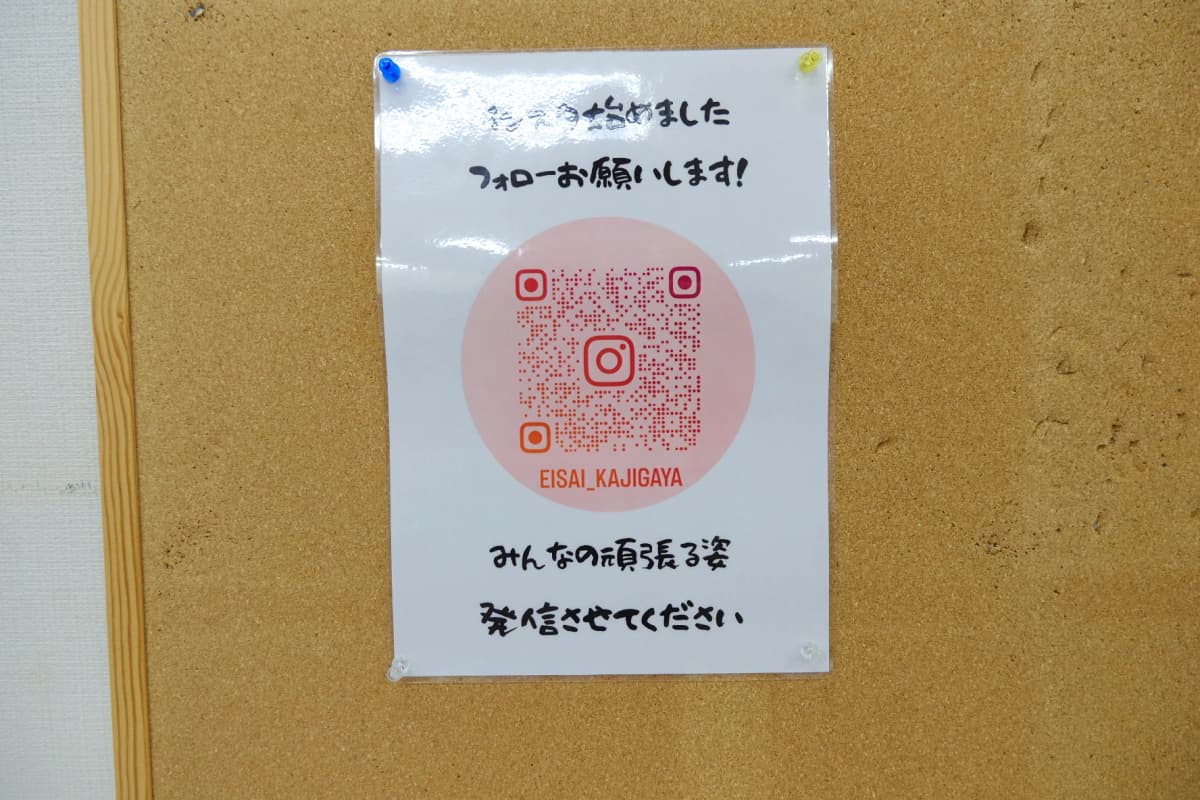 インスタ始めました
フォローお願いします!
EISAI_KAJIGAYA
みんなの頑張る姿
発信させてください